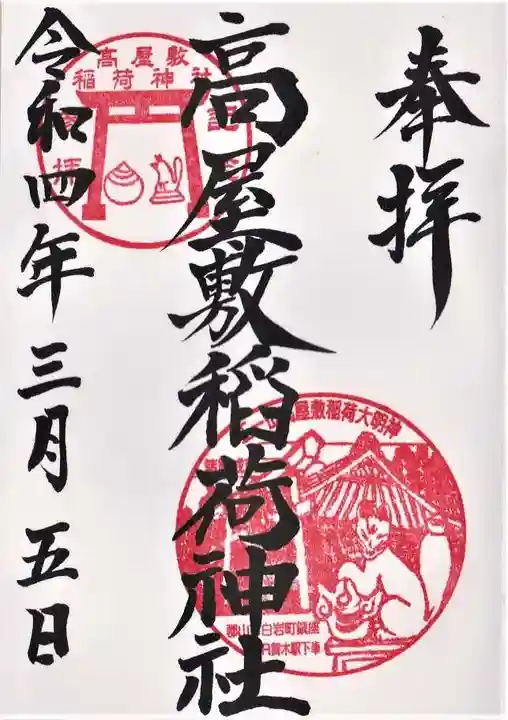 奉拝
高屋敷稲荷神社
令和四年三月五日
高屋敷
稲荷神社
屋敷稲荷大明神
郡山
白岩町鎮座
木駅下車